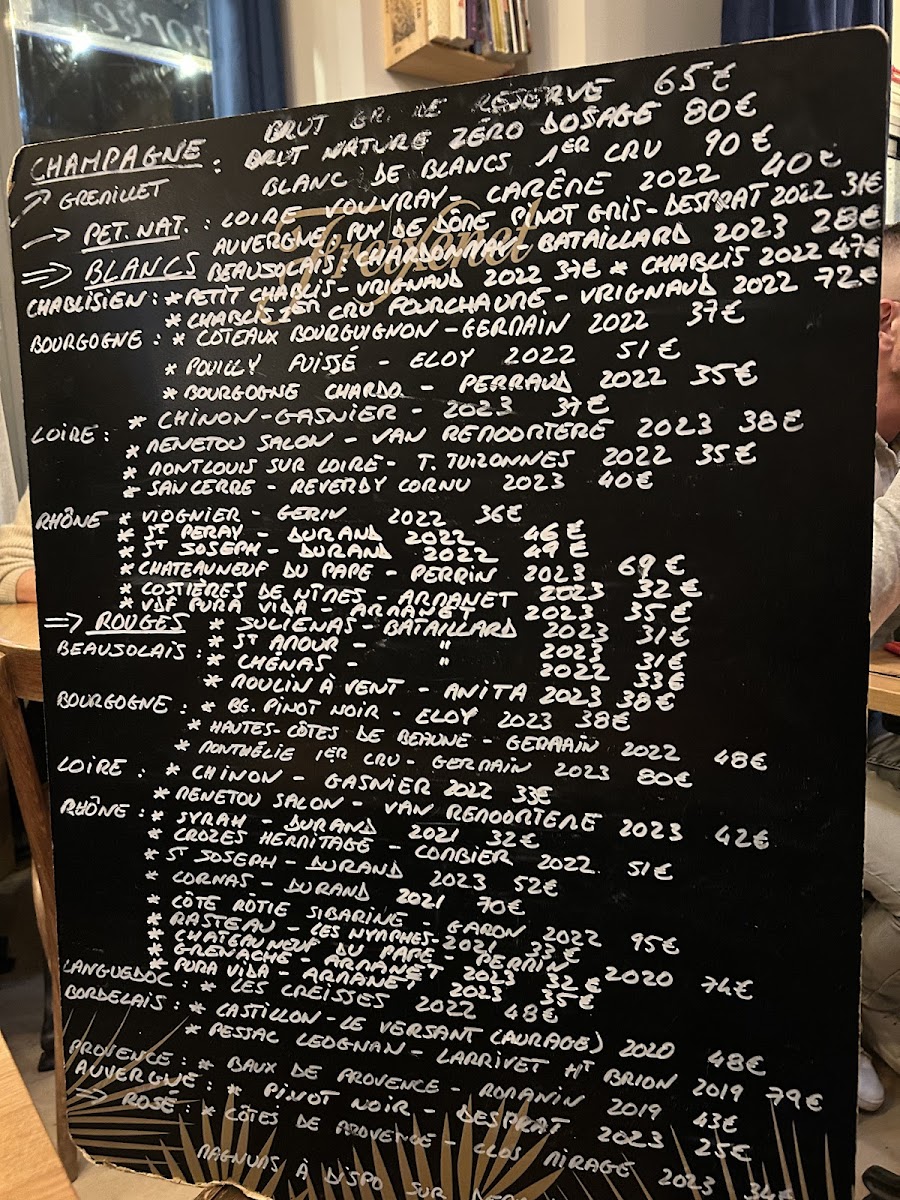 BRUT GR. DE RÉSERVE 65€
CHAMPAGNE : BRUT NATURE ZÉRO DOSAGE 80€
GREMILLET BLANC DE BLANCS 1ER CRU 90€
PET. NAT. : LOIRE VOUVRAY - CARÊME 2022 40€
AUVERGNE : PUY DE DÔME PINOT GRIS - DESPRAT 2022 31€
BLANCS BEAUJOLAIS CHARDONNAY - BATAILLARD 2023 28€
Freixenet
CHABLISIEN : * PETIT CHABLIS - VRIGNAUD 2022 37€ * CHABLIS 2022 47€
* CHABLIS 1ER CRU FOURCHAUME - VRIGNAUD 2022 72€
BOURGOGNE : * CÔTEAUX BOURGUIGNON - GERMAIN 2022 37€
* POUILLY FUISSÉ - ELOY 2022 51€
* BOURGOGNE CHARDO. - PERRAUD 2022 35€
LOIRE : * CHINON - GASNIER - 2023 37€
* MENETOU SALON - VAN REMOORTERE 2023 38€
* MONTLOUIS SUR LOIRE - T. TUIZONNES 2022 35€
* SANCERRE - REVERDY CORNU 2023 40€
RHÔNE * VIOGNIER - GERIN 2022 36€
* ST PERAY - DURAND 2022 46€
* ST JOSEPH - DURAND 2022 49€
* CHATEAUNEUF DU PAPE - PERRIN 2023 69€
* COSTIÈRES DE NÎMES - ARMANET 2023 32€
* VDF PURA VIDA - ARMANET 2023 35€
ROUGES * JULIENAS - BATAILLARD 2023 31€
BEAUJOLAIS : * ST AMOUR - " 2023 31€
* CHÉNAS - " 2022 33€
* MOULIN À VENT - ANITA 2023 38€
BOURGOGNE : * BG. PINOT NOIR - ELOY 2023 38€
* HAUTES-CÔTES DE BEAUNE - GERMAIN 2022 48€
* MONTHÉLIE 1ER CRU - GERMAIN 2023 80€
LOIRE : * CHINON - GASNIER 2022 33€
* MENETOU SALON - VAN REMOORTERE 2023 42€
RHÔNE : * SYRAH - DURAND 2021 32€
* CROZES HERMITAGE - COMBIER 2022 51€
* ST JOSEPH - DURAND 2023 52€
* CORNAS - DURAND 2021 70€
* CÔTE RÔTIE SIBARINE - GARON 2022 95€
* RASTEAU - LES NYMPHES - 2021 33€
* CHATEAUNEUF DU PAPE - PERRIN 2020 74€
* GRENACHE - ARMANET 2023 32€
* PURA VIDA - ARMANET 2023 35€
LANGUEDOC : * LES CREISSES 2022 48€
BORDELAIS : * CASTILLON - LE VERSANT (AURAGE) 2020 48€
* PESSAC LEOGNAN - LARRIVET HT BRION 2019 79€
PROVENCE : * BAUX DE PROVENCE - ROMANIN 2019 43€
AUVERGNE : * PINOT NOIR - DESPRAT 2023 25€
ROSÉ : * CÔTES DE PROVENCE - CLOS MIRAGE 2023 34€
MAGNUMS À DISPO SUR